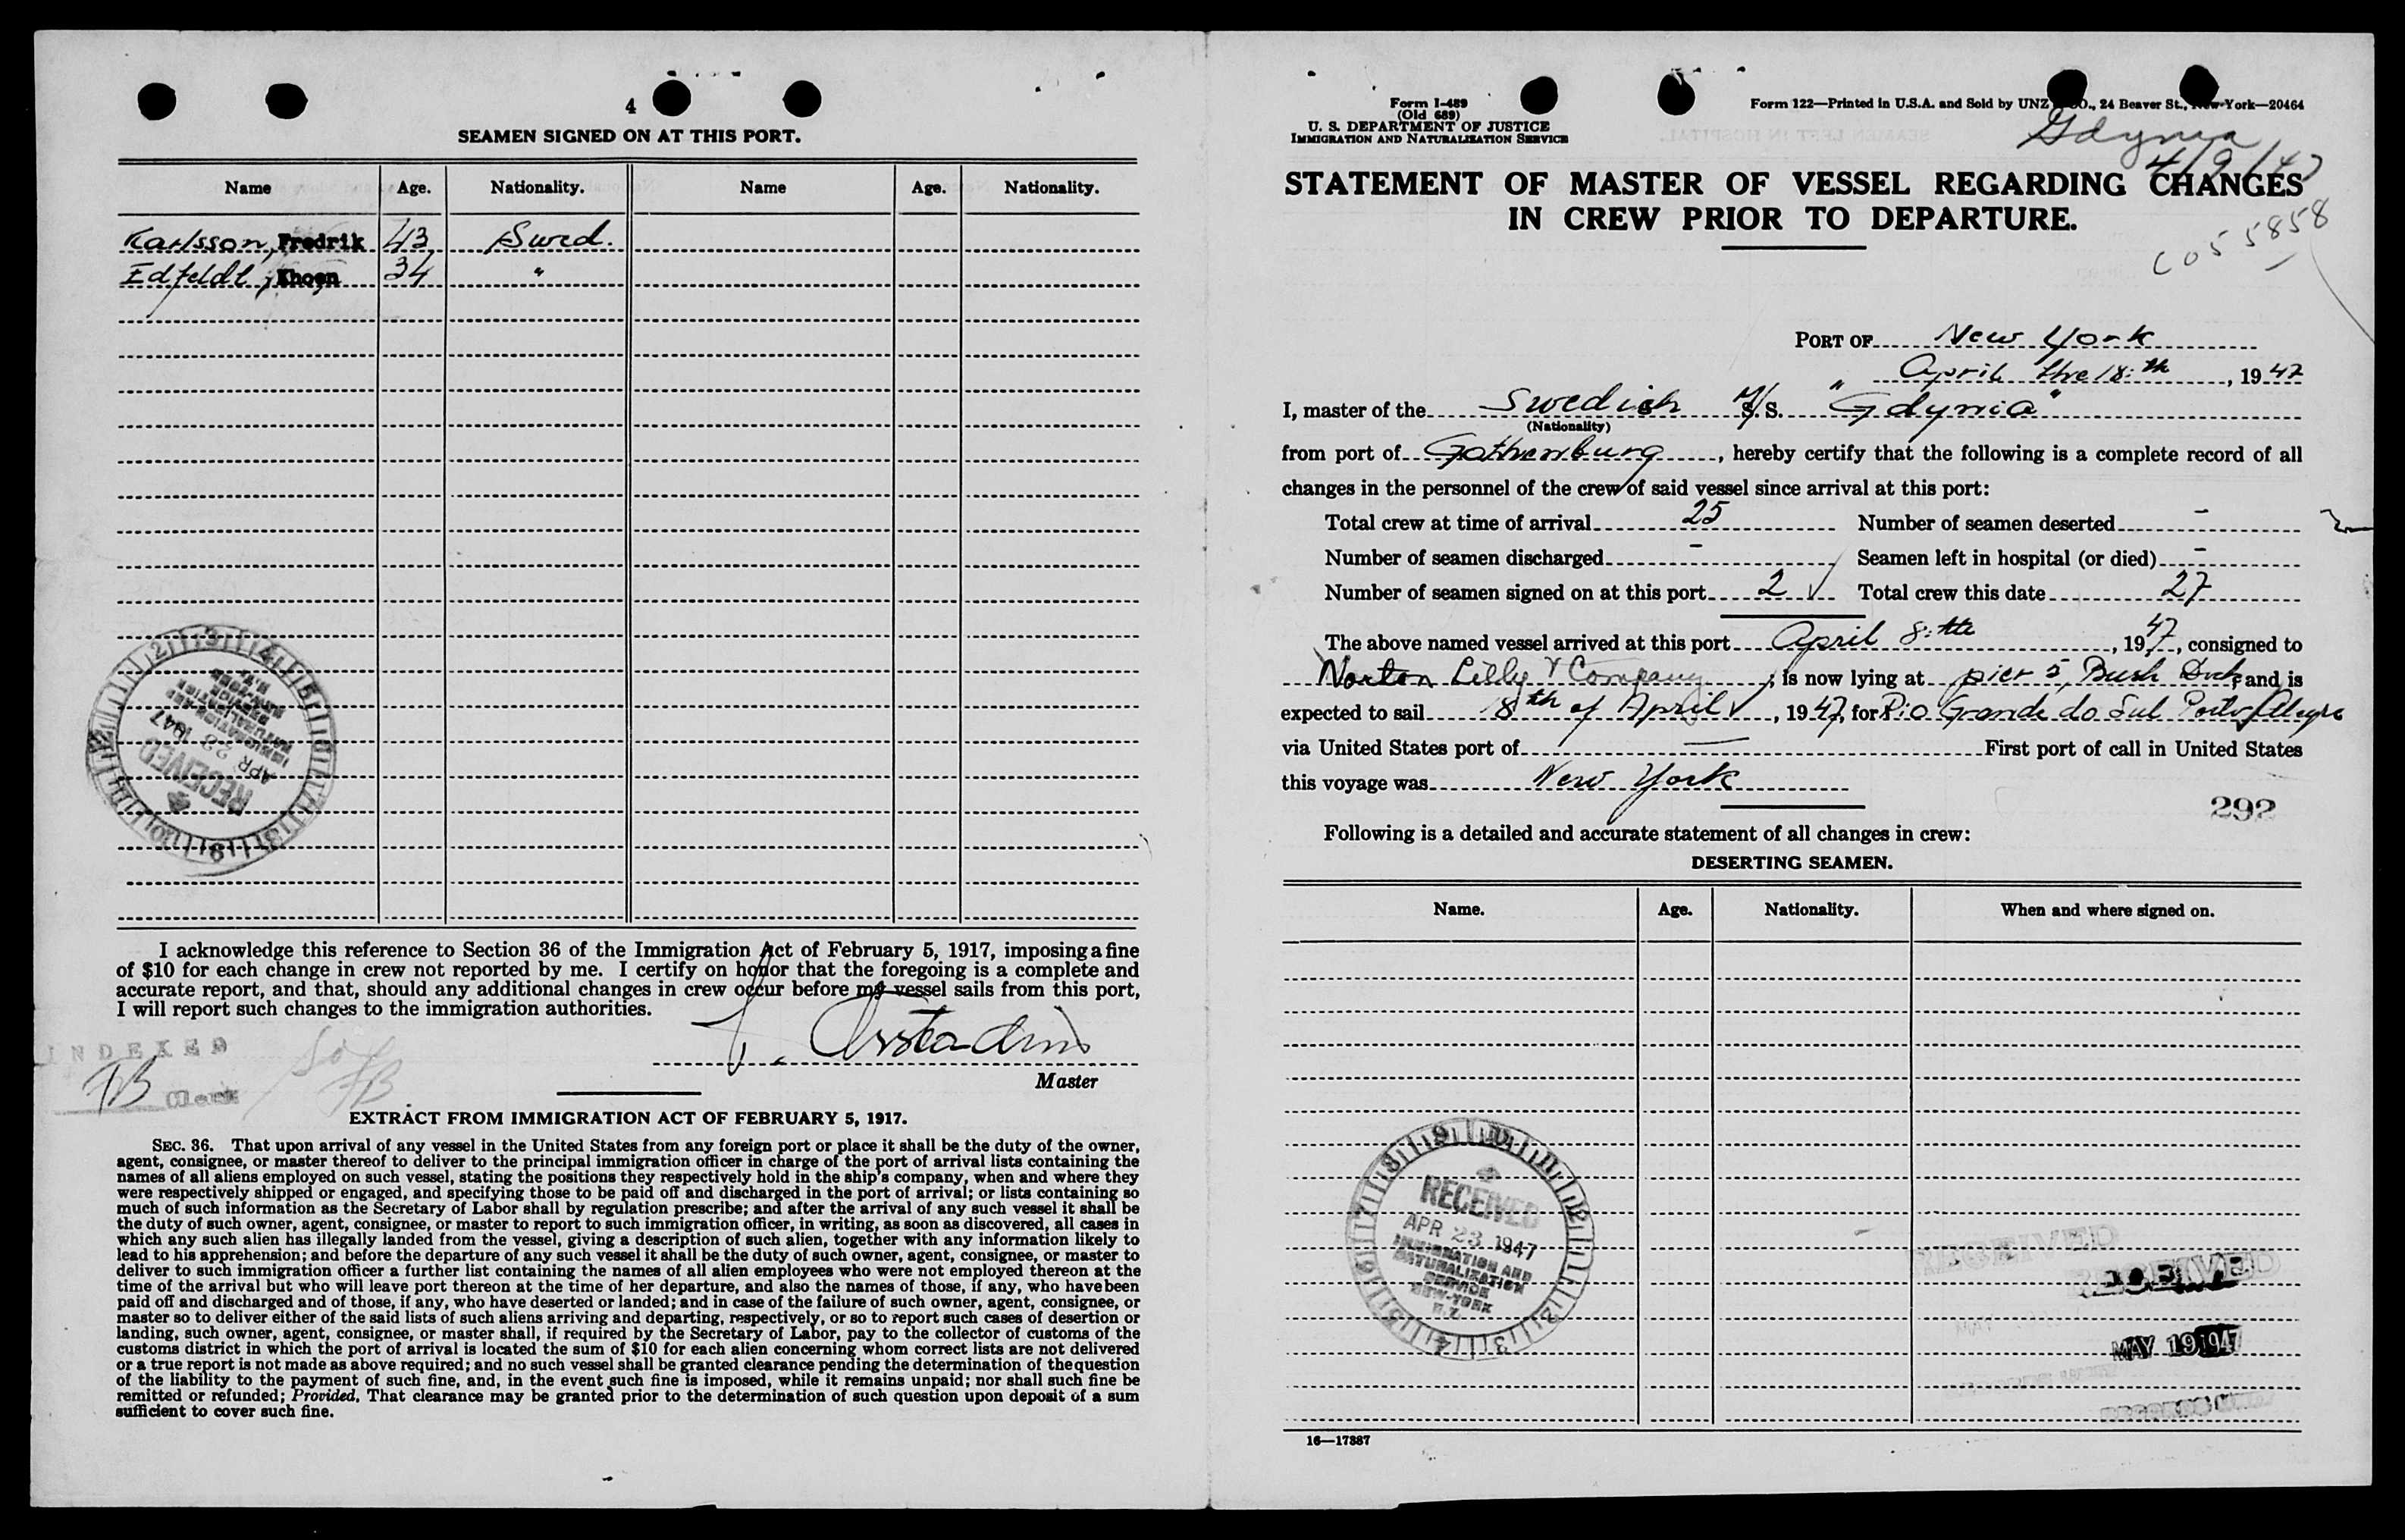 4
SEAMEN SIGNED ON AT THIS PORT.
Name Age. Nationality. Name Age. Nationality.
Karlsson, Fredrik 43 Swed.
Edfeldt, Khoen 34 "
RECEIVED
APR 23 1947
IMMIGRATION AND
NATURALIZATION
SERVICE
NEW-YORK
N.Y.
I acknowledge this reference to Section 36 of the Immigration Act of February 5, 1917, imposing a fine
of $10 for each change in crew not reported by me. I certify on honor that the foregoing is a complete and
accurate report, and that, should any additional changes in crew occur before my vessel sails from this port,
I will report such changes to the immigration authorities.
INDEXED
FB Clerk
Master
EXTRACT FROM IMMIGRATION ACT OF FEBRUARY 5, 1917.
SEC. 36. That upon arrival of any vessel in the United States from any foreign port or place it shall be the duty of the owner,
agent, consignee, or master thereof to deliver to the principal immigration officer in charge of the port of arrival lists containing the
names of all aliens employed on such vessel, stating the positions they respectively hold in the ship's company, when and where they
were respectively shipped or engaged, and specifying those to be paid off and discharged in the port of arrival; or lists containing so
much of such information as the Secretary of Labor shall by regulation prescribe; and after the arrival of any such vessel it shall be
the duty of such owner, agent, consignee, or master to report to such immigration officer, in writing, as soon as discovered, all cases in
which any such alien has illegally landed from the vessel, giving a description of such alien, together with any information likely to
lead to his apprehension; and before the departure of any such vessel it shall be the duty of such owner, agent, consignee, or master to
deliver to such immigration officer a further list containing the names of all alien employees who were not employed thereon at the
time of the arrival but who will leave port thereon at the time of her departure, and also the names of those, if any, who have been
paid off and discharged and of those, if any, who have deserted or landed; and in case of the failure of such owner, agent, consignee, or
master so to deliver either of the said lists of such aliens arriving and departing, respectively, or so to report such cases of desertion or
landing, such owner, agent, consignee, or master shall, if required by the Secretary of Labor, pay to the collector of customs of the
customs district in which the port of arrival is located the sum of $10 for each alien concerning whom correct lists are not delivered
or a true report is not made as above required; and no such vessel shall be granted clearance pending the determination of the question
of the liability to the payment of such fine, and, in the event such fine is imposed, while it remains unpaid; nor shall such fine be
remitted or refunded; Provided, That clearance may be granted prior to the determination of such question upon deposit of a sum
sufficient to cover such fine.
Form I-489
(Old 689)
U. S. DEPARTMENT OF JUSTICE
IMMIGRATION AND NATURALIZATION SERVICE
Form 122—Printed in U.S.A. and Sold by UNZ CO., 24 Beaver St., New York—20464
Gdynia
4/9/47
STATEMENT OF MASTER OF VESSEL REGARDING CHANGES
IN CREW PRIOR TO DEPARTURE.
C055858
PORT OF New York
April the 18:th, 1947
I, master of the Swedish M/S. "Gdynia"
(Nationality)
from port of Gothenburg, hereby certify that the following is a complete record of all
changes in the personnel of the crew of said vessel since arrival at this port:
Total crew at time of arrival 25 Number of seamen deserted -
Number of seamen discharged - Seamen left in hospital (or died) -
Number of seamen signed on at this port 2 Total crew this date 27
The above named vessel arrived at this port April 8:th, 1947, consigned to
Norton Lilly & Company, is now lying at pier 5, Bush Dock, and is
expected to sail 18th of April, 1947, for Rio Grande do Sul Porto Allegre
via United States port of — First port of call in United States
this voyage was New York
292
Following is a detailed and accurate statement of all changes in crew:
DESERTING SEAMEN.
Name. Age. Nationality. When and where signed on.
RECEIVED
APR 23 1947
IMMIGRATION AND
NATURALIZATION
SERVICE
NEW-YORK
N.Y.
RECEIVED
RECEIVED
MAY 19 1947
16—17887